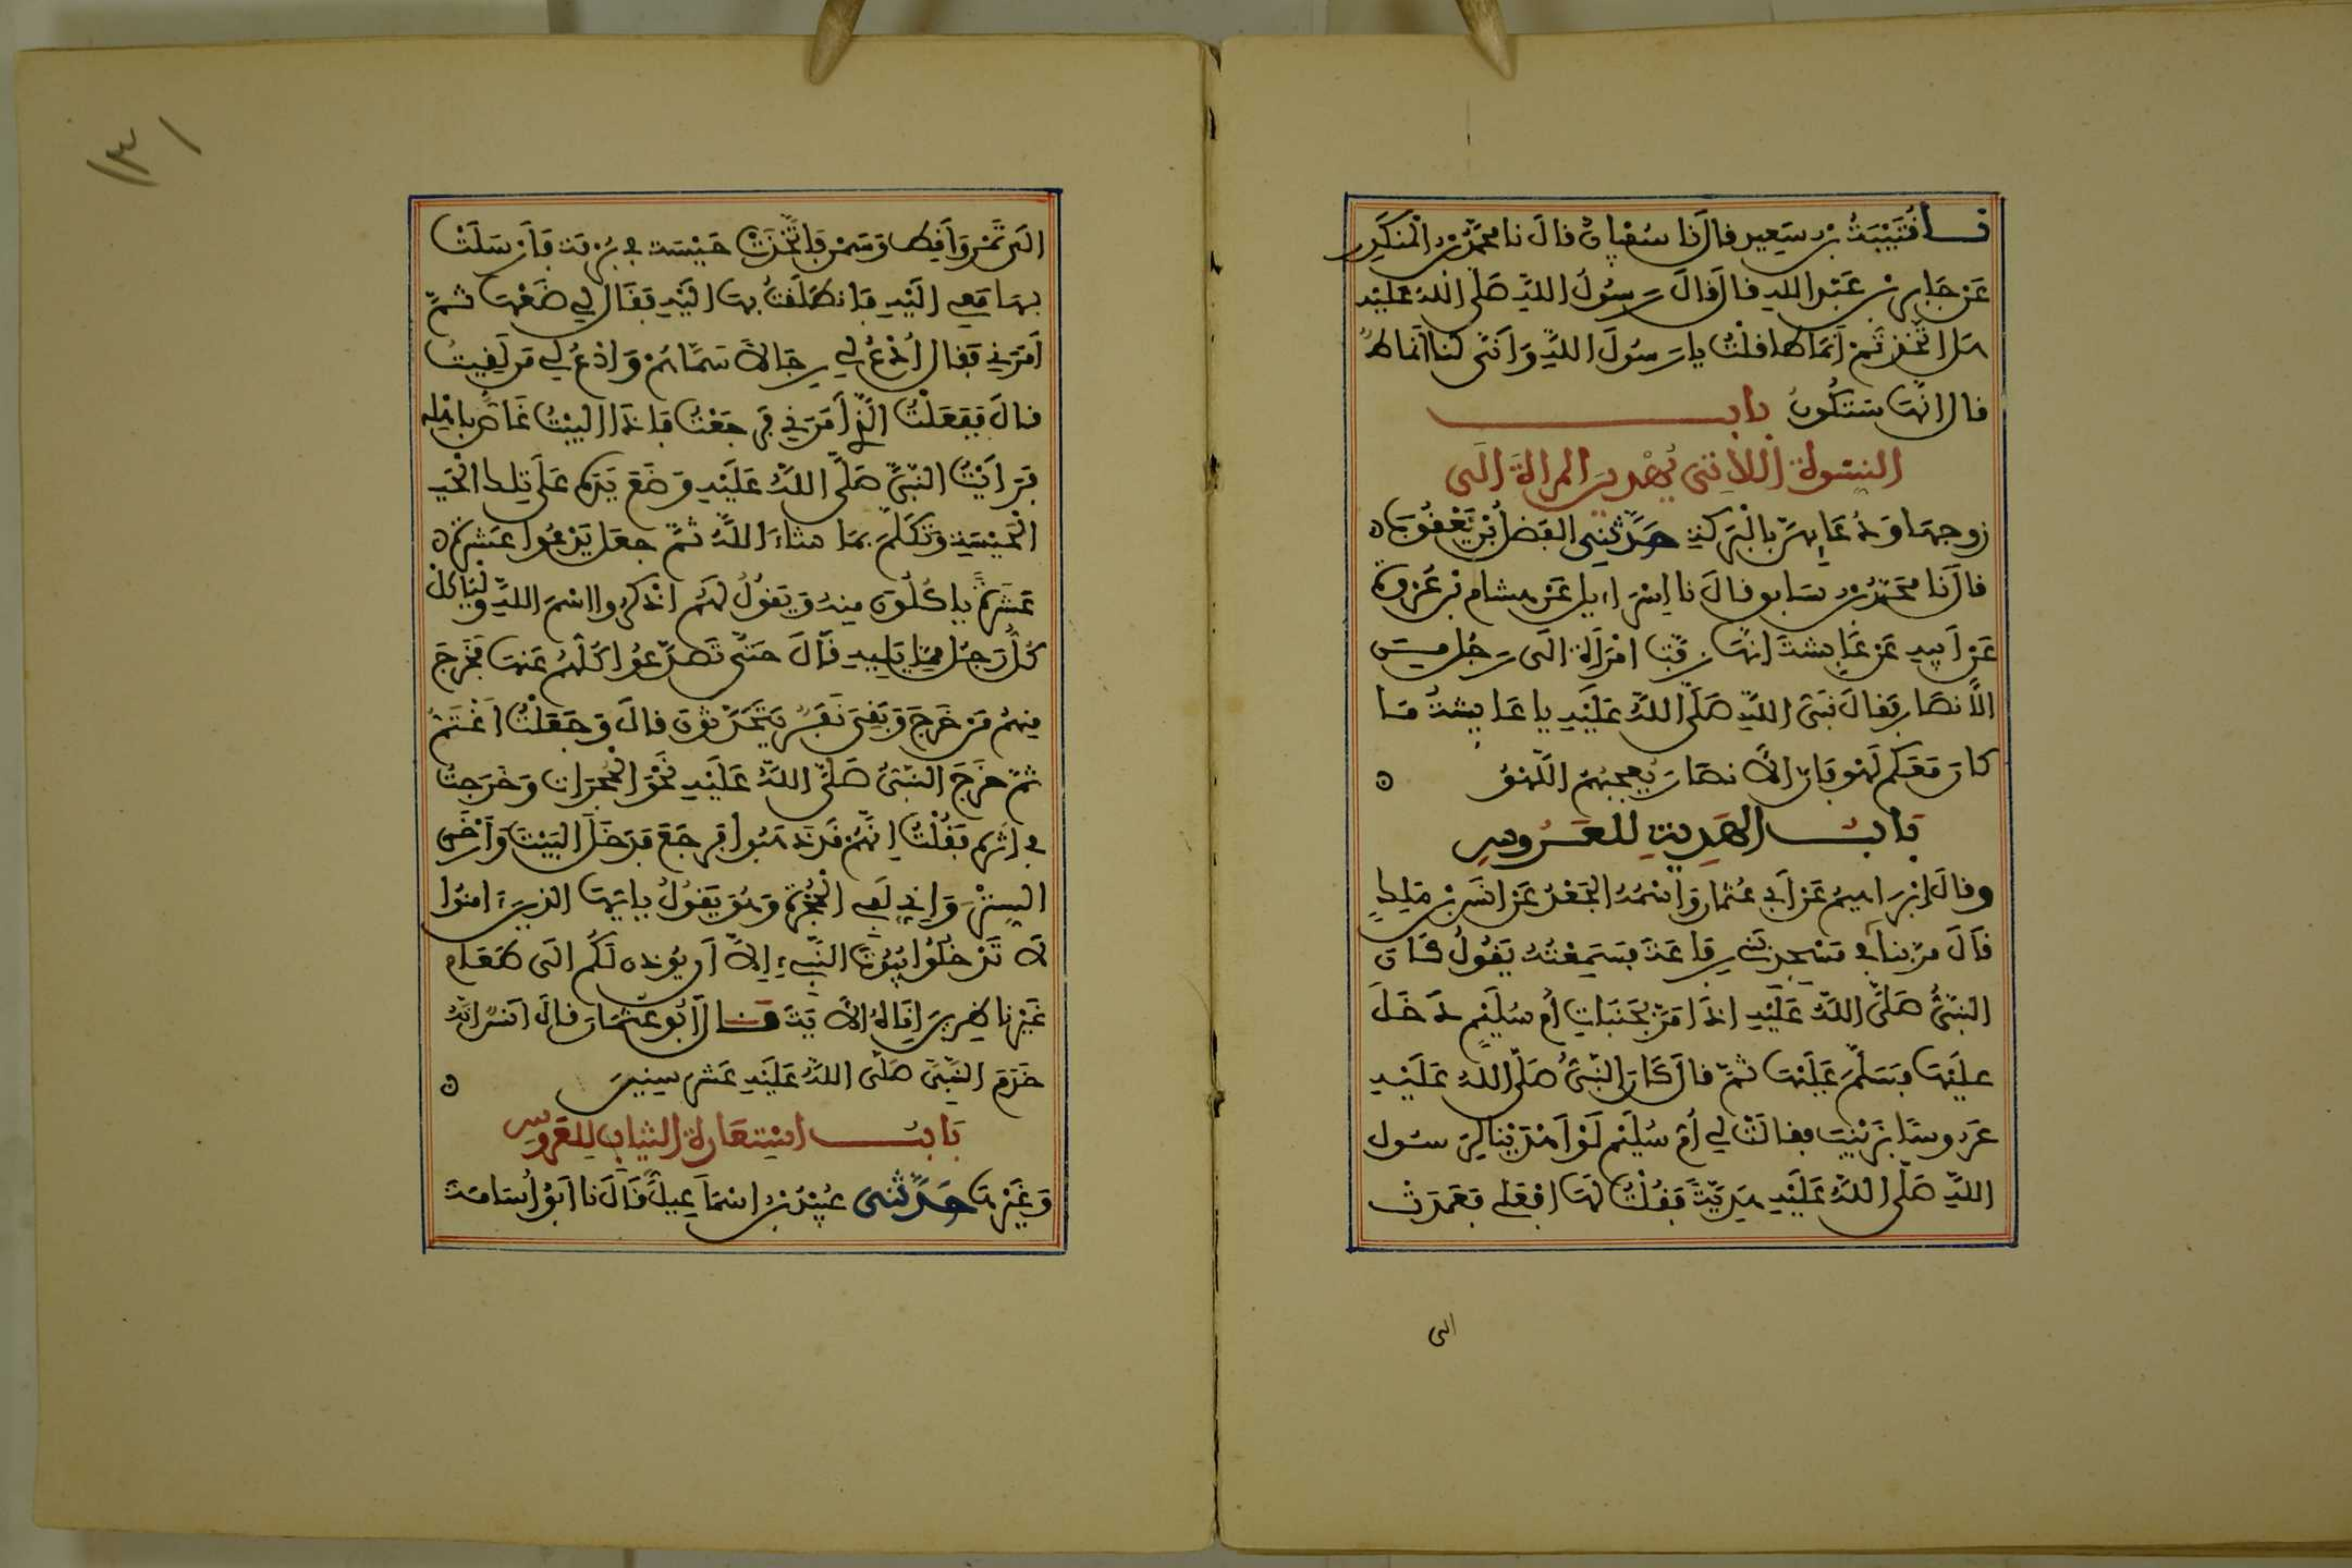 نا قُتَيْبَةُ بْنُ سَعِيدٍ قال نا سُفْيَانُ قال نا محمَّدُ بْنُ الْمُنْكَدِرِ
عَنْ جَابِرِ بْنِ عَبْدِ اللهِ قال قالَ رَسُولُ اللهِ صَلَّى اللهُ عَلَيْهِ
هَلِ اتَّخَذْتُمْ أَنْمَاطًا قلْتُ يا رَسُولَ اللَّهِ وَأَنَّى لَنَا أَنْمَاطٌ
قال إنَّهَا سَتَكُونُ بابــ
النسْوَةِ اللَّاتِي يُهْدِينَ المرأةَ إلَى
زوجهَا وَدُعَائِهِنَّ بِالْبَرَكَةِ حَدَّثَنِي الفَضْلُ بْنُ يَعْقُوبَ
قالَ نا محَمَّدُ بْنُ سَابِقٍ قالَ نا إِسْرَاءِيلُ عَنْ هِشَامِ بْنِ عُرْوَةَ
عَنْ أَبِيهِ عَنْ عَايِشَةَ أَنَّهَا زَفَّتِ امْرَأَةً إلَى رَجُلٍ مِنَ
الأَنصَارِ فَقالَ نَبِيُّ اللَّهِ صَلَّى اللَّهُ عَلَيْهِ يا عَايِشَةُ مَا
كَانَ مَعَكُمْ لَهْوٌ فَإِنَّ الأَنصَارَ يُعْجِبُهُمُ اللَّهْوُ
بَابُــ الهَدِيَّةِ لِلعَــرُوسِ
وقالَ إِبْرَاهِيمُ عَنْ أَبِي عُثْمَانَ وَاسْمُهُ الجَعْدُ عَنْ أَنَسِ بْنِ مَلِكٍ
قَالَ مَرَّ بِنَا فِي مَسْجِدِ بَنِي رِفَاعَةَ فَسَمِعْتُهُ يَقُولُ كَانَ
النَّبِيُّ صَلَّى اللَّهُ عَلَيْهِ إِذَا مَرَّ بِجَنَبَاتِ أُمِّ سُلَيْمٍ دَخَلَ
عليْهَا فَسَلَّمَ عَلَيْهَا ثُمَّ قال كَانَ النَّبِيُّ صَلَّى اللهُ عَلَيْهِ
عَرُوسًا بِزَيْنَبَ فقالَتْ لِي أُمُّ سُلَيْمٍ لَوْ أَهْدَيْنَا لِرَسُولِ
اللَّهِ صَلَّى اللَّهُ عَلَيْهِ هَدِيَّةً فَقُلْتُ لَهَا افْعَلِي فَعَمَدَتْ
الى
١٣١
إلَى تَمْرٍ وَأَقِطٍ وَسَمْنٍ فَاتَّخَذَتْ حَيْسَةً فِي بُرْمَةٍ فَأَرْسَلَتْ
بِهَا مَعِي إِلَيْهِ فَانطَلَقْتُ بِهَا إلَيْهِ فَقَالَ لِي ضَعْهَا ثُمَّ
أَمَرَنِي فَقال ادْعُ لِي رِجَالاً سَمَّاهُمْ وَادْعُ لِي مَن لَقِيتُ
قالَ فَفَعَلْتُ الَّذِي أَمَرَنِي فَرَجَعْتُ فَإِذَا البَيْتُ غَاصٌّ بِأَهْلِهِ
فَرَأَيْتُ النَّبِيَّ صَلَّى اللَّهُ عَلَيْهِ وَضَعَ يَدَهُ عَلَى تِلكَ
الْحَيْسَةِ وَتَكَلَّمَ بِمَا شَاءَ اللَّهُ ثُمَّ جعَلَ يَدْعُوا عَشَرَةً
عَشَرَةً يَاكُلُونَ مِنهُ وَيَقُولُ لَهُمُ اذْكُرُوا اسْمَ اللَّهِ وَلْيَاكُلْ
كُلُّ رَجُلٍ مِمَّا يَلِيهِ قَالَ حَتَّى تَصَدَّعُوا كُلُّهُمْ عَنْهَا فَخَرَجَ
مِنهُمْ مَنْ خَرَجَ وَبَقِيَ نَفَرٌ يَتَحَدَّثُونَ قالَ وَجَعَلْتُ أَغْتَمُّ
ثُمَّ خَرَجَ النَّبِيُّ صَلَّى اللَّهُ عَلَيْهِ نَحْوَ الْحُجُرَاتِ وَخَرَجْتُ
فِي إِثْرِهِ فَقُلْتُ إِنَّهُمْ قَدْ ذَهَبُوا فَرَجَعَ فَدَخَلَ البَيْتَ وَأَرْخَى
السِتْرَ وَإِنِّي لَفِي الْحُجْرَةِ وَهُوَ يَقُولُ يَاأَيُّهَا الذِينَ ءَامَنُوا
لاَ تَدْخُلُوا بُيُوتَ النَّبِيءِ إِلاَّ أَن يُوذَنَ لَكُمْ إلَى طَعَامٍ
غَيْرَ نَاظِرِينَ إِنَاهُ الآيَةَ قَــالَ أَبُو عُثْمَانَ قالَ أَنَسٌ إِنَّهُ
خَدَمَ النَّبِيَّ صَلَّى اللَّهُ عَلَيْهِ عَشْرَ سِنِينَ
بَابُــ اسْتِعَارَةِ الثِّيَابِ لِلعَرُوسِ
وَغَيْرِهَا حَدَّثَنِي عُبَيْدُ بْنُ إِسْمَاعِيلَ قَالَ نا أَبُو أُسَامَةَ